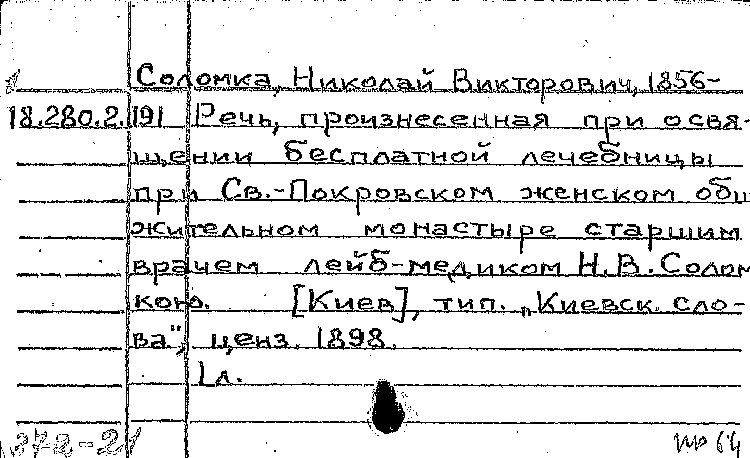 Соломка, Николай Викторович, 1856-
18.280.2.191 Речь, произнесенная при освя-
щении бесплатной лечебницы
при Св.-Покровском женском общ
жительном монастыре старшим
врачем лейб-медиком Н.В. Солом
кою. [Киев], тип. „Киевск. сло-
ва", ценз. 1898.
1 л.
372-21